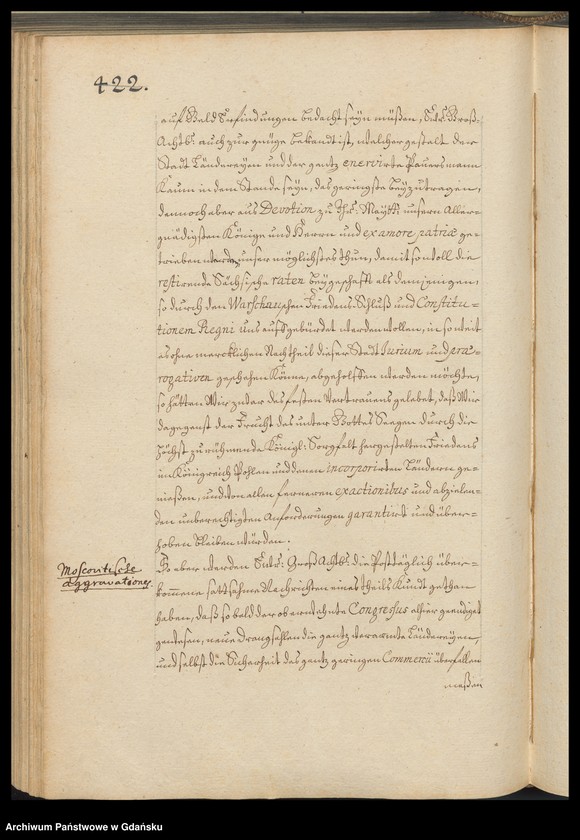 422.
auf Geld Erfindungen bedacht seyn müßen, Ew. Groß-
Achtb: auch zur gnüge bekandt ist, welcher gestalt der
Stadt Ländereyen und der gantz enervirte Pauersmann
kaum in dem Stande seyn, das geringste beyzutragen,
dennoch aber aus Devotion zu Ihr: Maytt: unsern Aller-
gnädigsten Könige und Herrn und ex amore patriæ ge-
trieben werden unser möglichstes thun, damit so woll die
restirende Sächsische raten beygeschafft als demjenigen,
so durch den Warschauschen Friedens-Schluß und Constitu-
tionem Regni uns aufgebürdet werden wollen, in so weit
es ohne mercklichen Nachtheil dieser Stadt Jurium und præ-
rogativen geschehen könne, abgeholffen werden möchte,
so hätten Wir zwar des festen Vertrauens gelebet, daß Wir
dagegenst der Frucht des unter Gottes Seegen durch die
höchst zu rühmende Königl: Sorgfalt hergestelten Friedens
im Königreich Pohlen und denen incorporirten Länderen ge-
nießen, und von allen ferneren exactionibus und abzielen-
den unberechtigten Anforderungen garantirt und über-
hoben bleiben würden.
Moscovitische
aggravationes.
So aber werden Ew: Groß Achtb: die Posttäglich über-
kommene sattsahme Nachrichten eines theils kundt gethan
haben, daß so bald der obermehnte Congressus alhier geendiget
gewesen, neue Drangsahlen die gantz verarmte Ländereyen,
und selbst die Sicherheit des gantz geringen Commercii überfallen
maßen
Archiwum Państwowe w Gdańsku